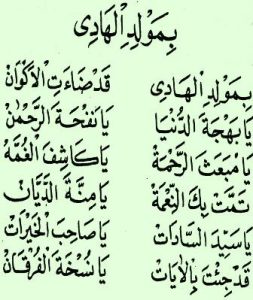 بِمَوْلِدِ الْهَادِى
بِمَوْلِدِ الْهَادِى قَدْ ضَاءَتِ الْأَكْوَانْ
يَا بَهْجَةَ الدُّنْيَا يَا نَفْحَةَ الرَّحْمٰنْ
يَا مَبْعَثَ الرَّحْمَةْ يَا كَاشِفَ الْغُمَّةْ
تَمَّتْ بِكَ النِّعْمَةْ يَا مِنَّةَ الدَّيَّانْ
يَا سَيِّدَ السَّادَاتْ يَا صَاحِبَ الْخَيْرَاتْ
قَدْ جِئْتَ بِالْاٰيَاتْ يَا نُسْخَةَ الْفُرْقَانْ